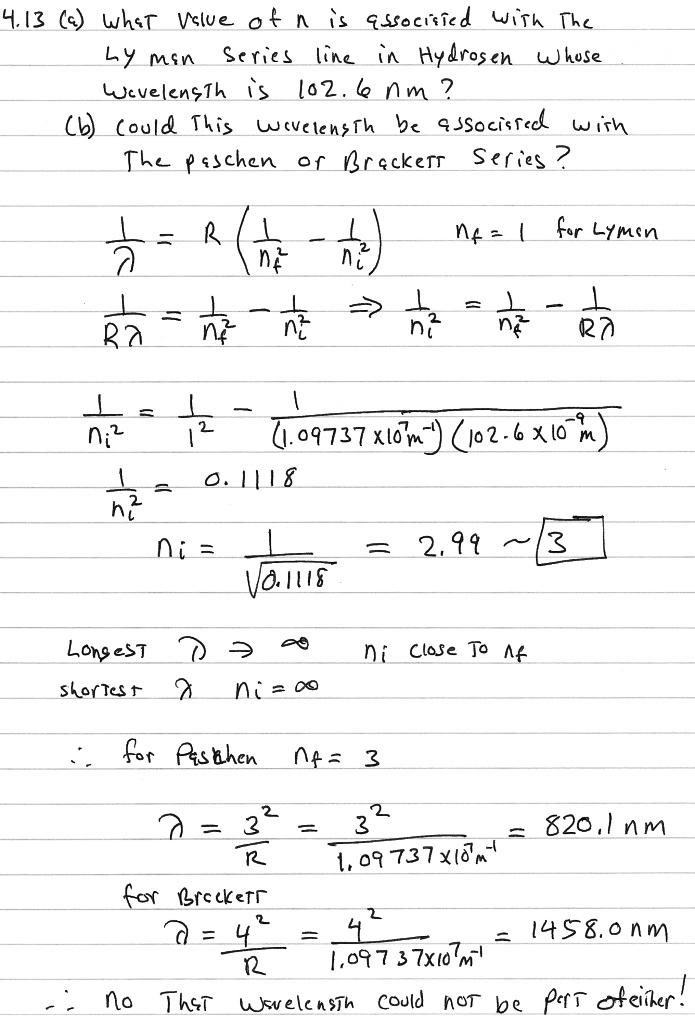 4.13 (a) What value of n is associated with the
Lyman series line in Hydrogen whose
wavelength is 102.6 nm?
(b) Could this wavelength be associated with
the paschen or Brackett series?
1/λ = R (1/n_f² - 1/n_i²)  n_f = 1 for Lyman
1/(Rλ) = 1/n_f² - 1/n_i² ⇒ 1/n_i² = 1/n_f² - 1/(Rλ)
1/n_i² = 1/1² - 1/((1.09737 x10⁷ m⁻¹)(102.6 x 10⁻⁹ m))
1/n_i² = 0.1118
n_i = 1/√0.1118 = 2.99 ~ 3
Longest λ → ∞  n_i close to n_f
shortest λ n_i = ∞
∴ for Paschen n_f = 3
λ = 3²/R = 3²/(1.09737 x10⁷ m⁻¹) = 820.1 nm
for Brackett
λ = 4²/R = 4²/(1.09737x10⁷ m⁻¹) = 1458.0 nm
∴ no That wavelength could not be part of either!